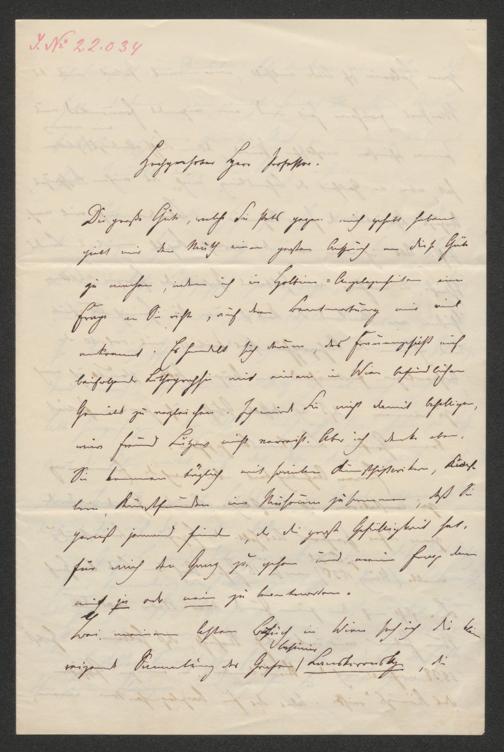 J. No 22.034
Hochgeehrter Herr Professor.
Die große Güte, welche Sie stets gegen mich gehabt haben
giebt mir den Muth einen großen Anspruch an diese Güte
zu machen, indem ich in Holbein-Angelegenheiten eine
Frage an Sie richte, auf deren Beantwortung mir viel
ankommt. Es handelt sich darum, das Frauengesicht auf
beifolgender Lithographie mit einem in Wien befindlichen
Gemälde zu vergleichen. Ich würde Sie nicht damit behelligen,
wäre Freund Lützow nicht verreist. Aber ich denke eben,
Sie kommen täglich mit so vielen Kunsthistorikern, Künst-
lern, Kunstfreunden im Museum zusammen, daß Sie
gewiß jemand finden, der die große Gefälligkeit hat,
für mich den Gang zu gehen und meine Frage dann
mit ja oder nein zu beantworten.
Bei meinem letzten Besuch in Wien sah ich die
Sammlung des Grafen Lanckoronsky, die